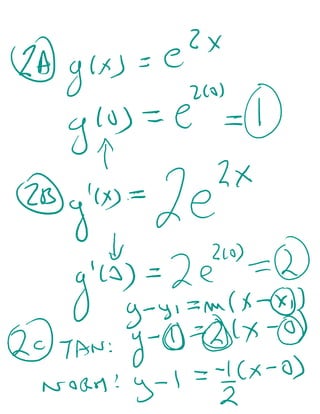 2A g(x) = e^2x
g(0) = e^2(0) = 1
↑
2B g'(x) = 2e^2x
↓
g'(0) = 2e^2(0) = 2
y-y₁ = m(x-x₁)
2C TAN: y-1 = 2(x-0)
NORM: y-1 = -1/2(x-0)